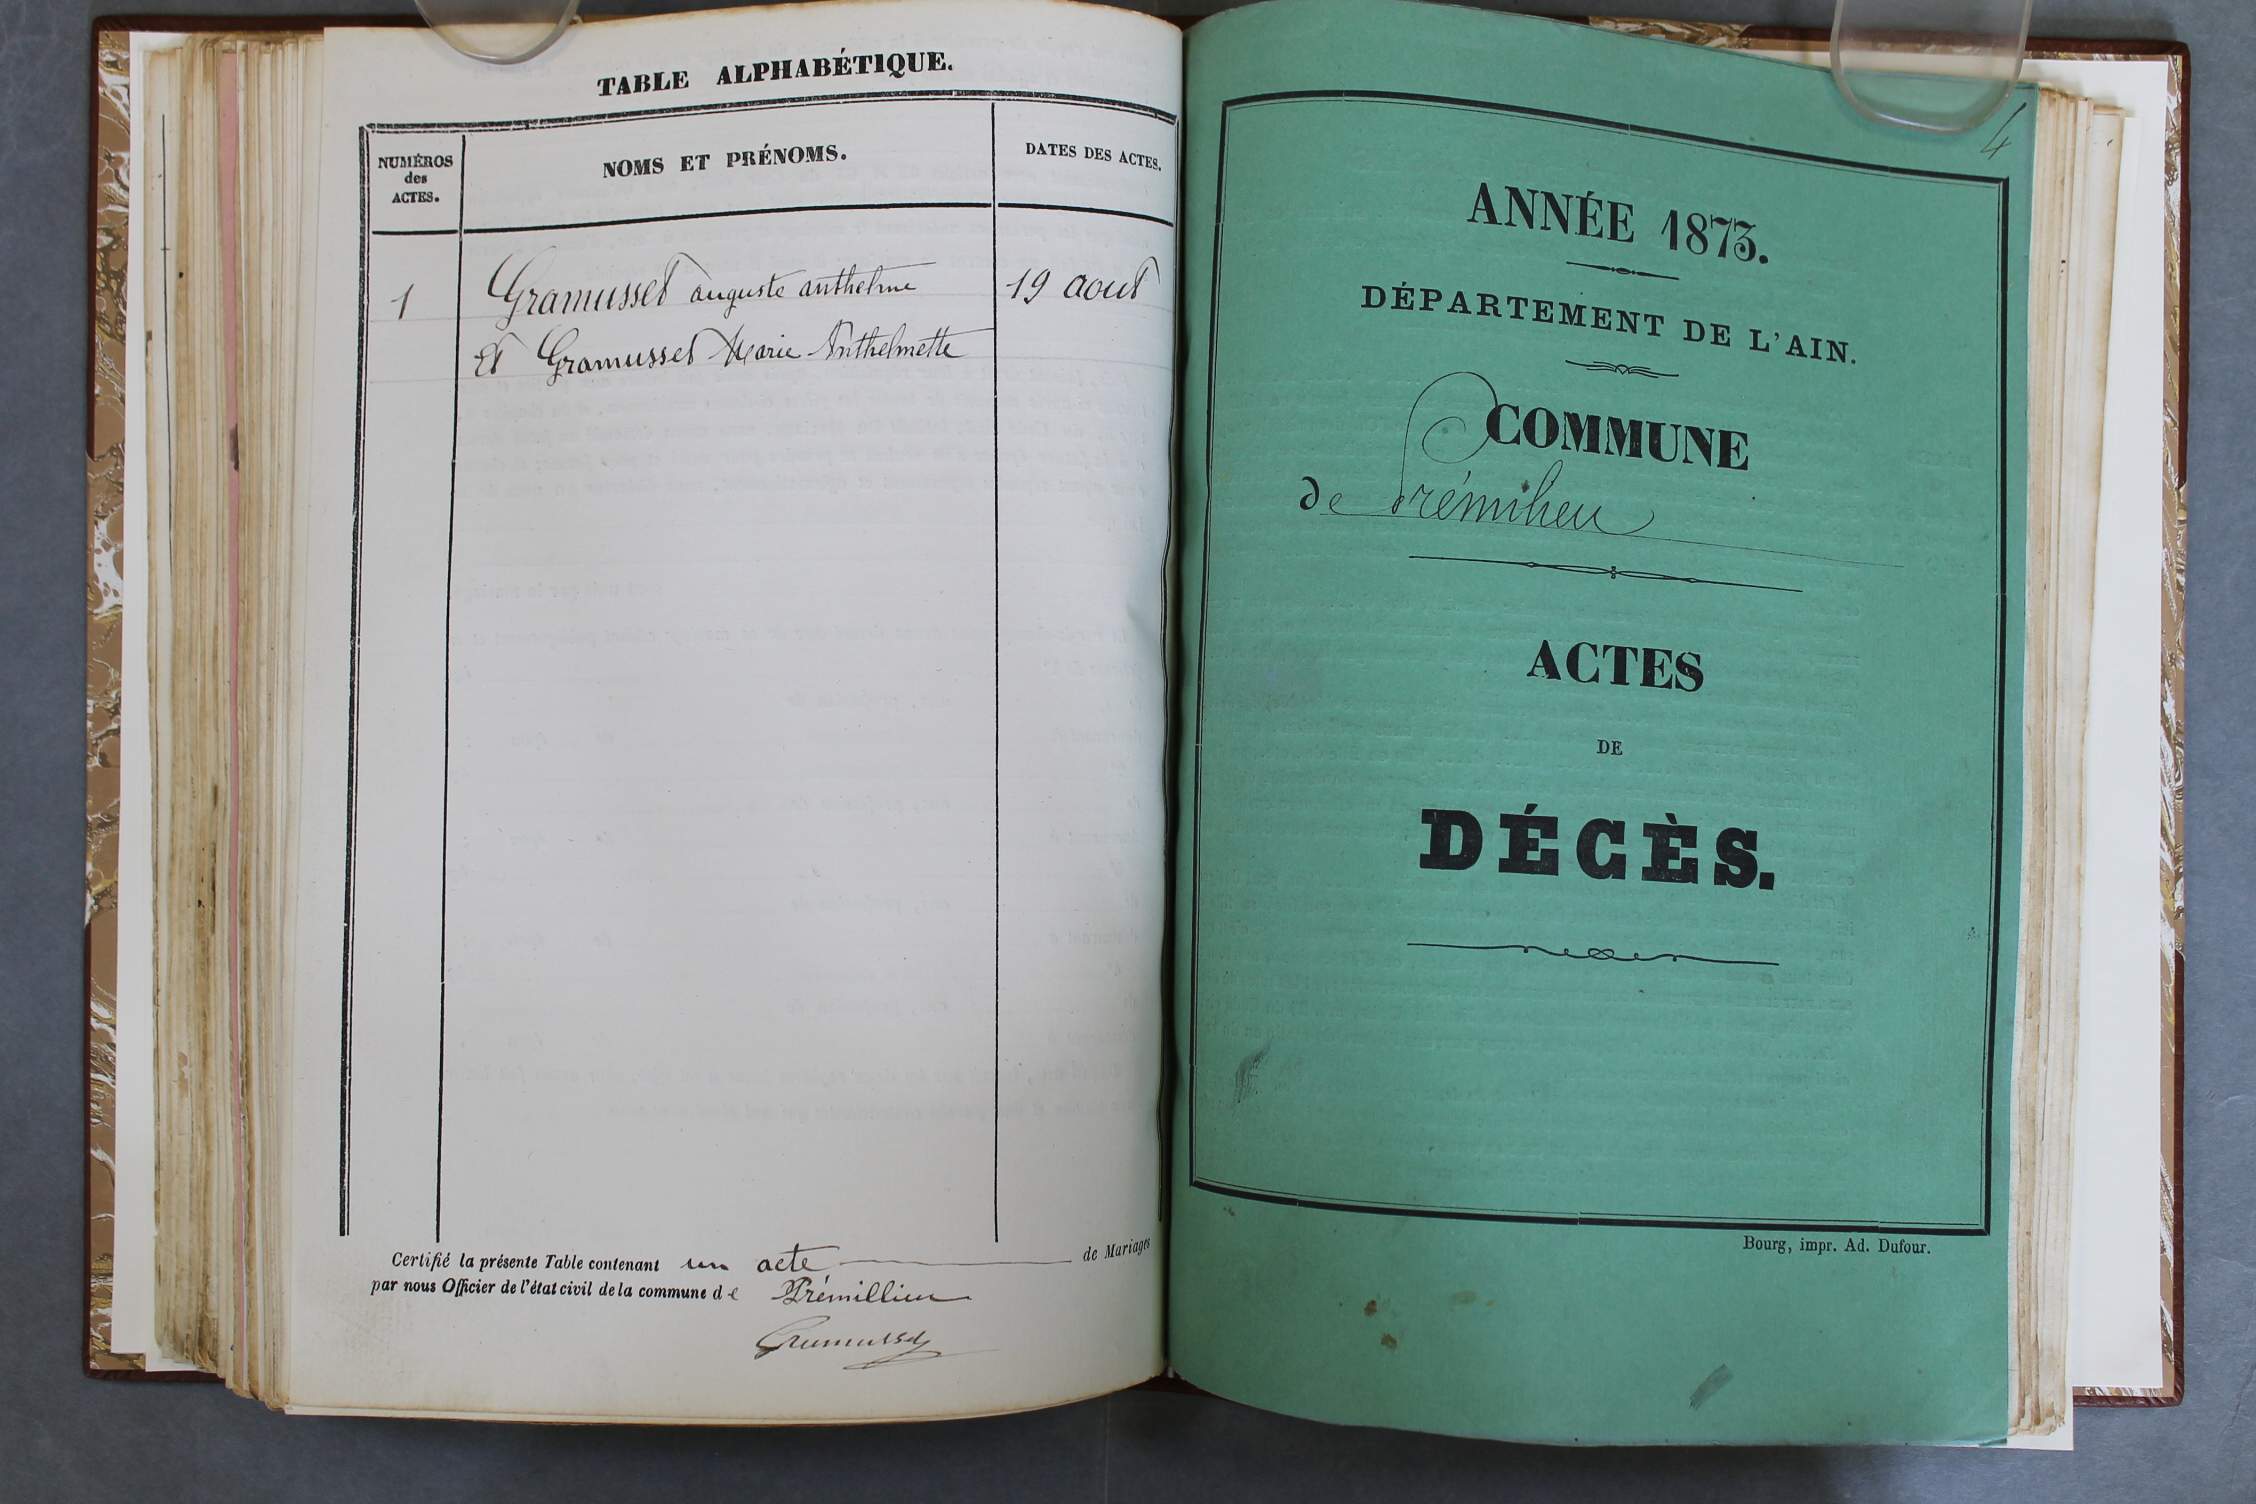 TABLE ALPHABÉTIQUE.
NUMÉROS
des
ACTES.
NOMS ET PRÉNOMS.
DATES DES ACTES.
1
Gramusset auguste anthelme
19 aout
et Gramusset Marie Anthelmette
Certifié la présente Table contenant un acte de Mariages
par nous Officier de l'état civil de la commune de Prémillieu
Gramusset
4
ANNÉE 1873.
DÉPARTEMENT DE L'AIN.
COMMUNE
de Prémilieu
ACTES
DE
DÉCÈS.
Bourg, impr. Ad. Dufour.